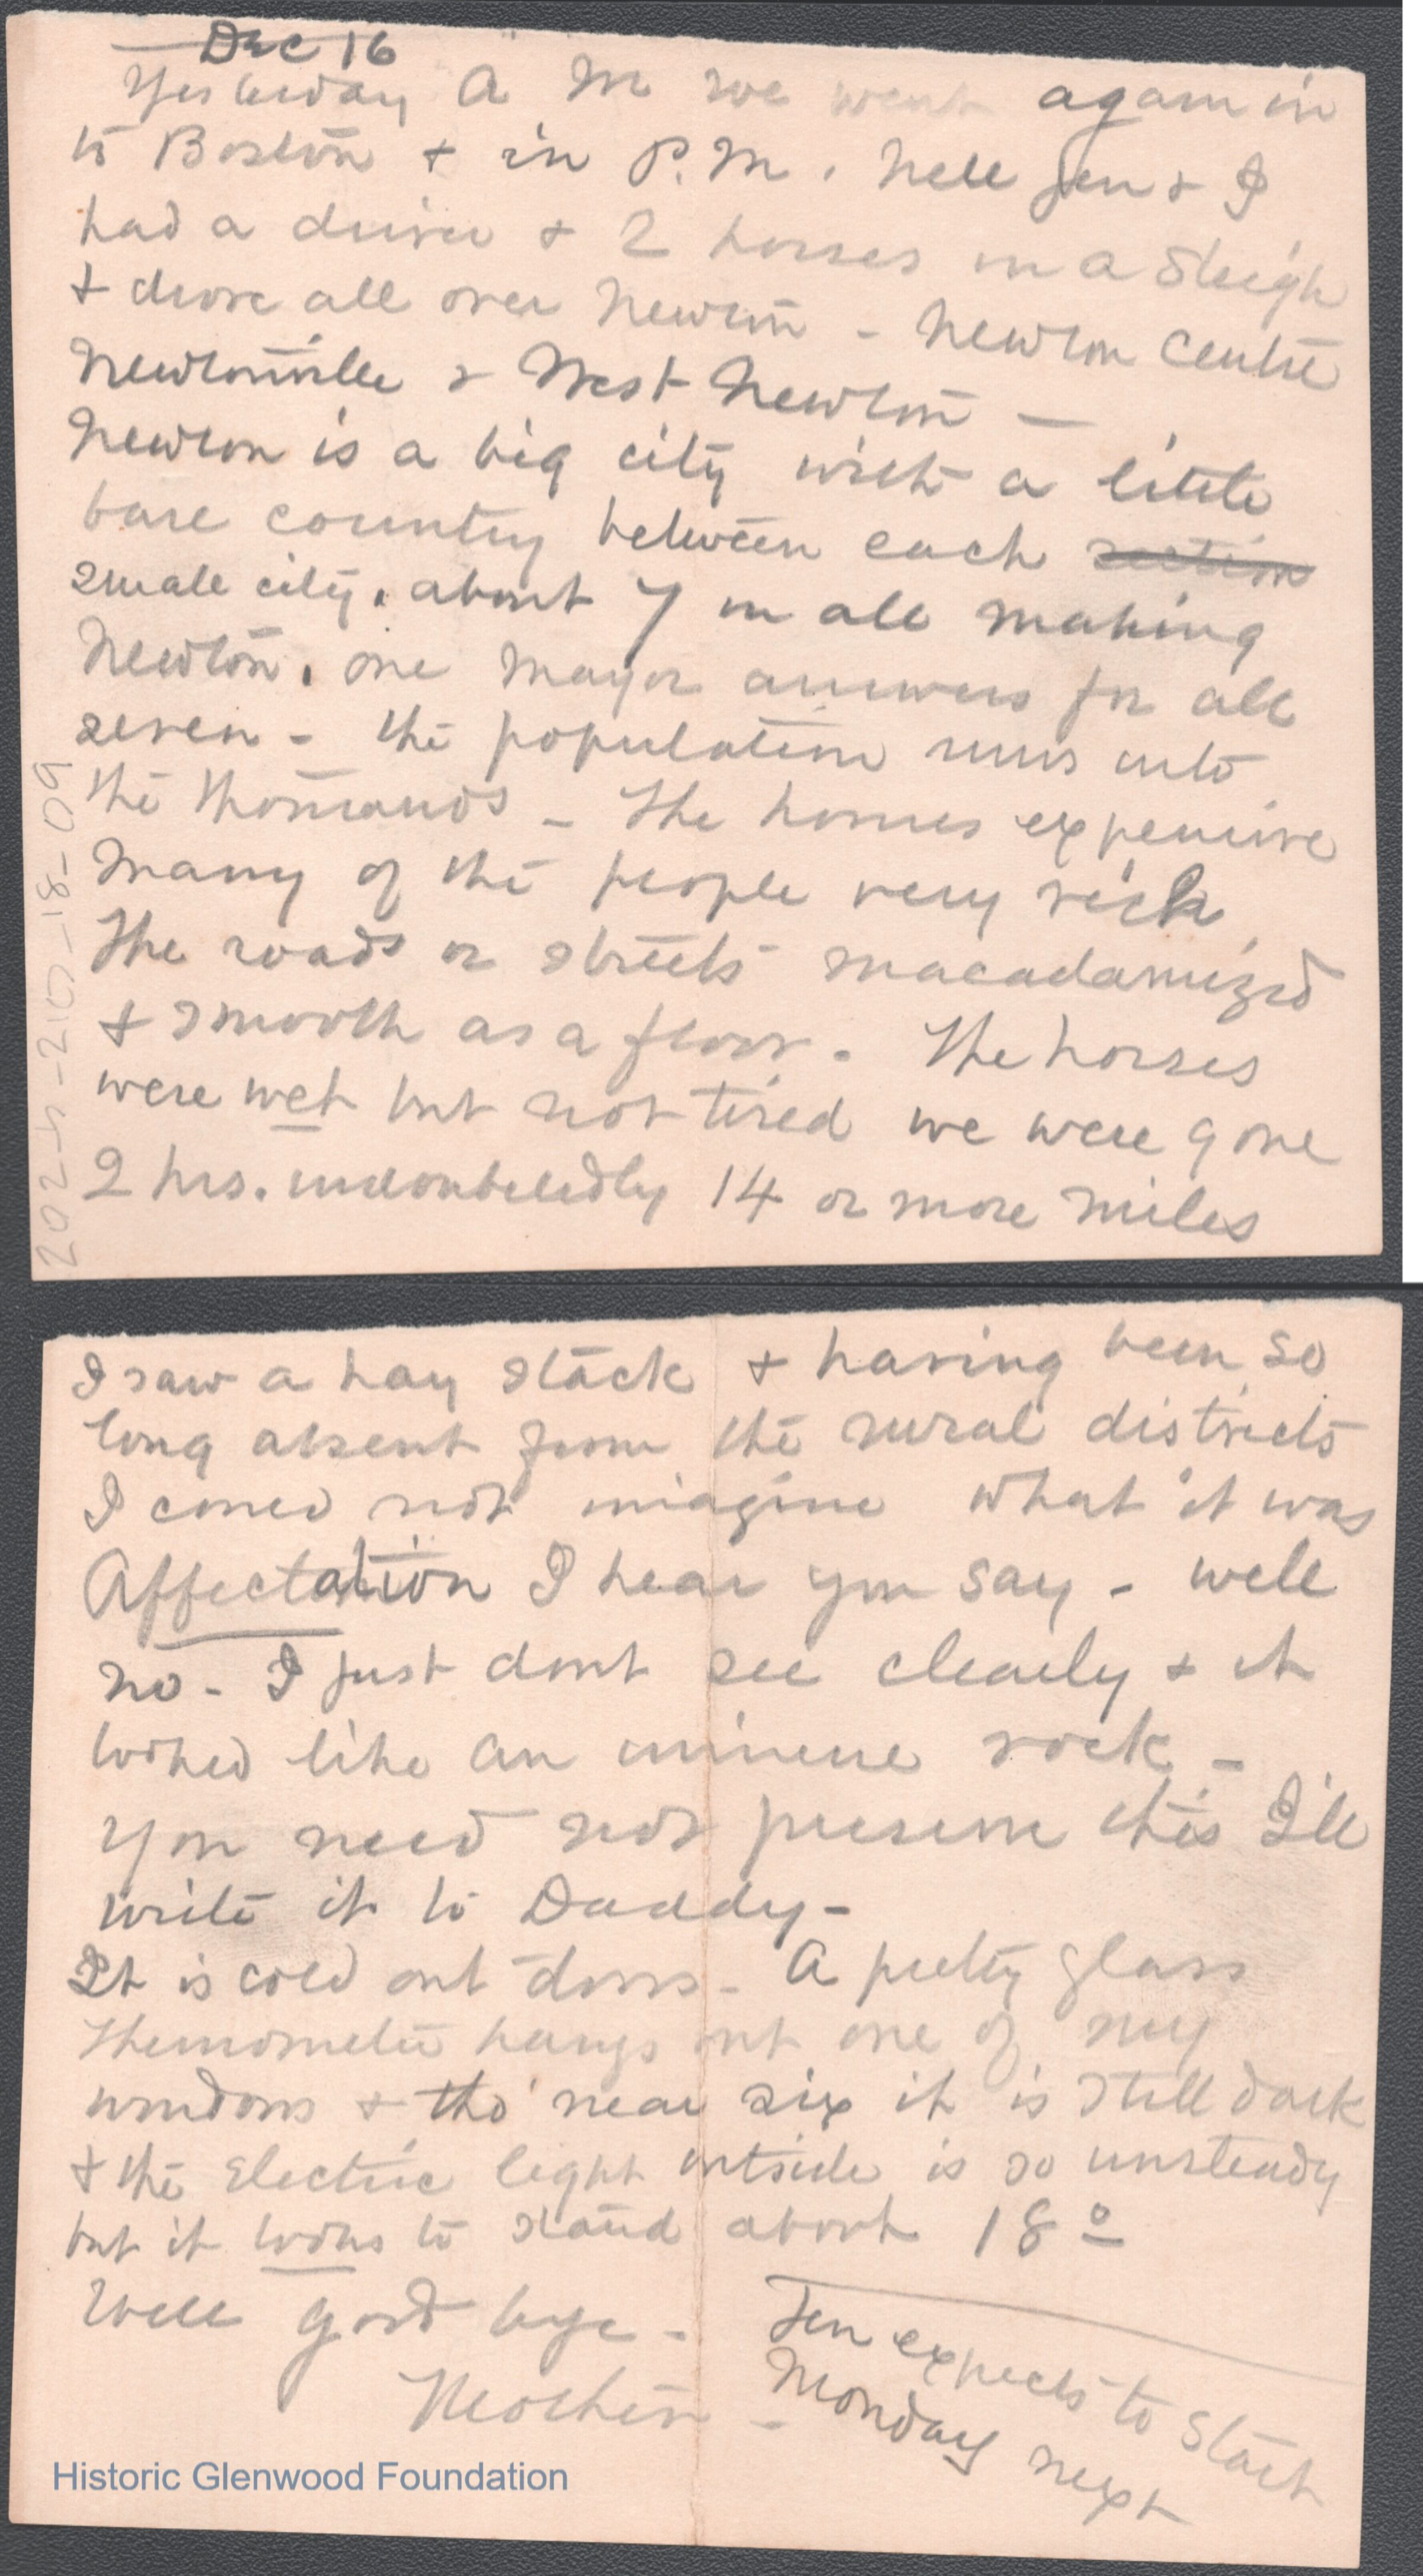 Dec 16
Yesterday A M we went again in
to Boston + in P.M. Nell Jen + I
had a driver + 2 horses in a Sleigh
+ drove all over Newton - Newton Centre
Newtonville + West Newton —
Newton is a big city with a little
bare country between each section
small city, about 7 in all making
Newton, one mayor answers for all
seven - the population runs into
the thousands - The homes expensive
many of the people very rich
The roads or streets macadamized
+ smooth as a floor. The horses
were wet but not tired we were gone
2 hrs. undoubtedly 14 or more miles
2024-210-18-09
I saw a hay stack + having been so
long absent from the rural districts
I could not imagine what it was
Affectation I hear you say - well
no - I just dont see clearly + it
looked like an immense rock -
You need not preserve this I'll
write it to Daddy -
It is cold out doors - A pretty glass
thermometer hangs out one of my
windows + tho' near six it is still dark
+ the Electric light outside is so unsteady
but it looks to stand about 18°
Well good bye -
Mother -
Jen expects to start
Monday next
Historic Glenwood Foundation